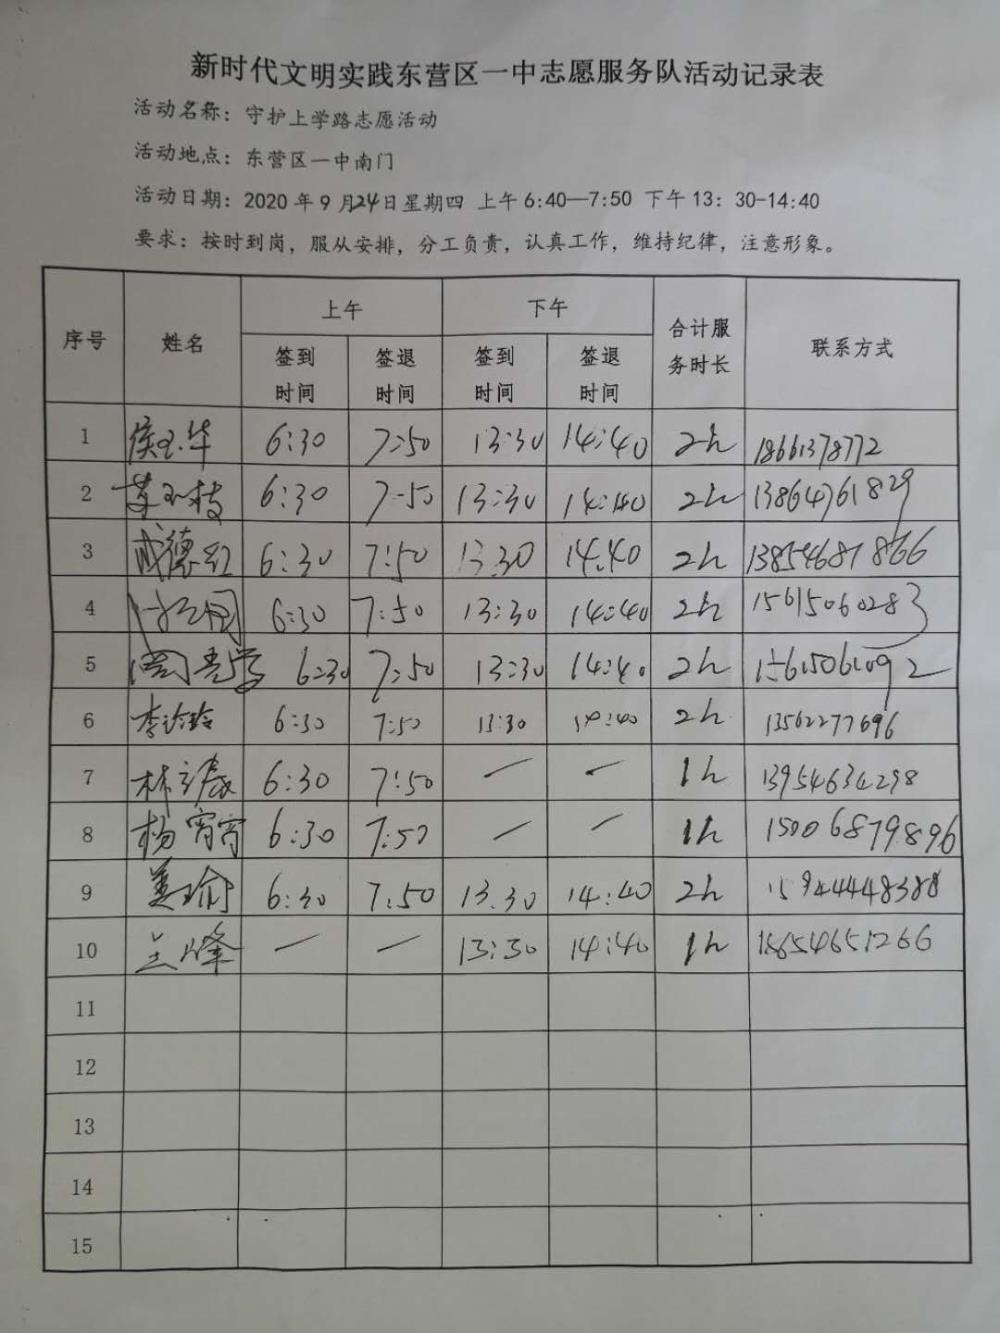 新时代文明实践东营区一中志愿服务队活动记录表
活动名称：守护上学路志愿活动
活动地点：东营区一中南门
活动日期：2020年9月24日星期四 上午6:40—7:50 下午13：30-14:40
要求：按时到岗，服从安排，分工负责，认真工作，维持纪律，注意形象。
序号 姓名 上午 下午 合计服务时长 联系方式
签到时间 签退时间 签到时间 签退时间
1 侯玉华 6:30 7:50 13:30 14:40 2h 18661378772
2 6:30 7:50 13:30 14:40 2h 13864761829
3 成德红 6:30 7:50 13:30 14:40 2h 13854681866
4 6:30 7:50 13:30 14:40 2h 15615060283
5 6:30 7:50 13:30 14:40 2h 15615061092
6 李玲玲 6:30 7:50 13:30 14:40 2h 13562277696
7 6:30 7:50 — — 1h 13954634298
8 杨宵宵 6:30 7:50 — — 1h 15006879896
9 姜瑜 6:30 7:50 13.30 14:40 2h
10 兰峰 — — 13:30 14:40 1h 18654651266
11
12
13
14
15